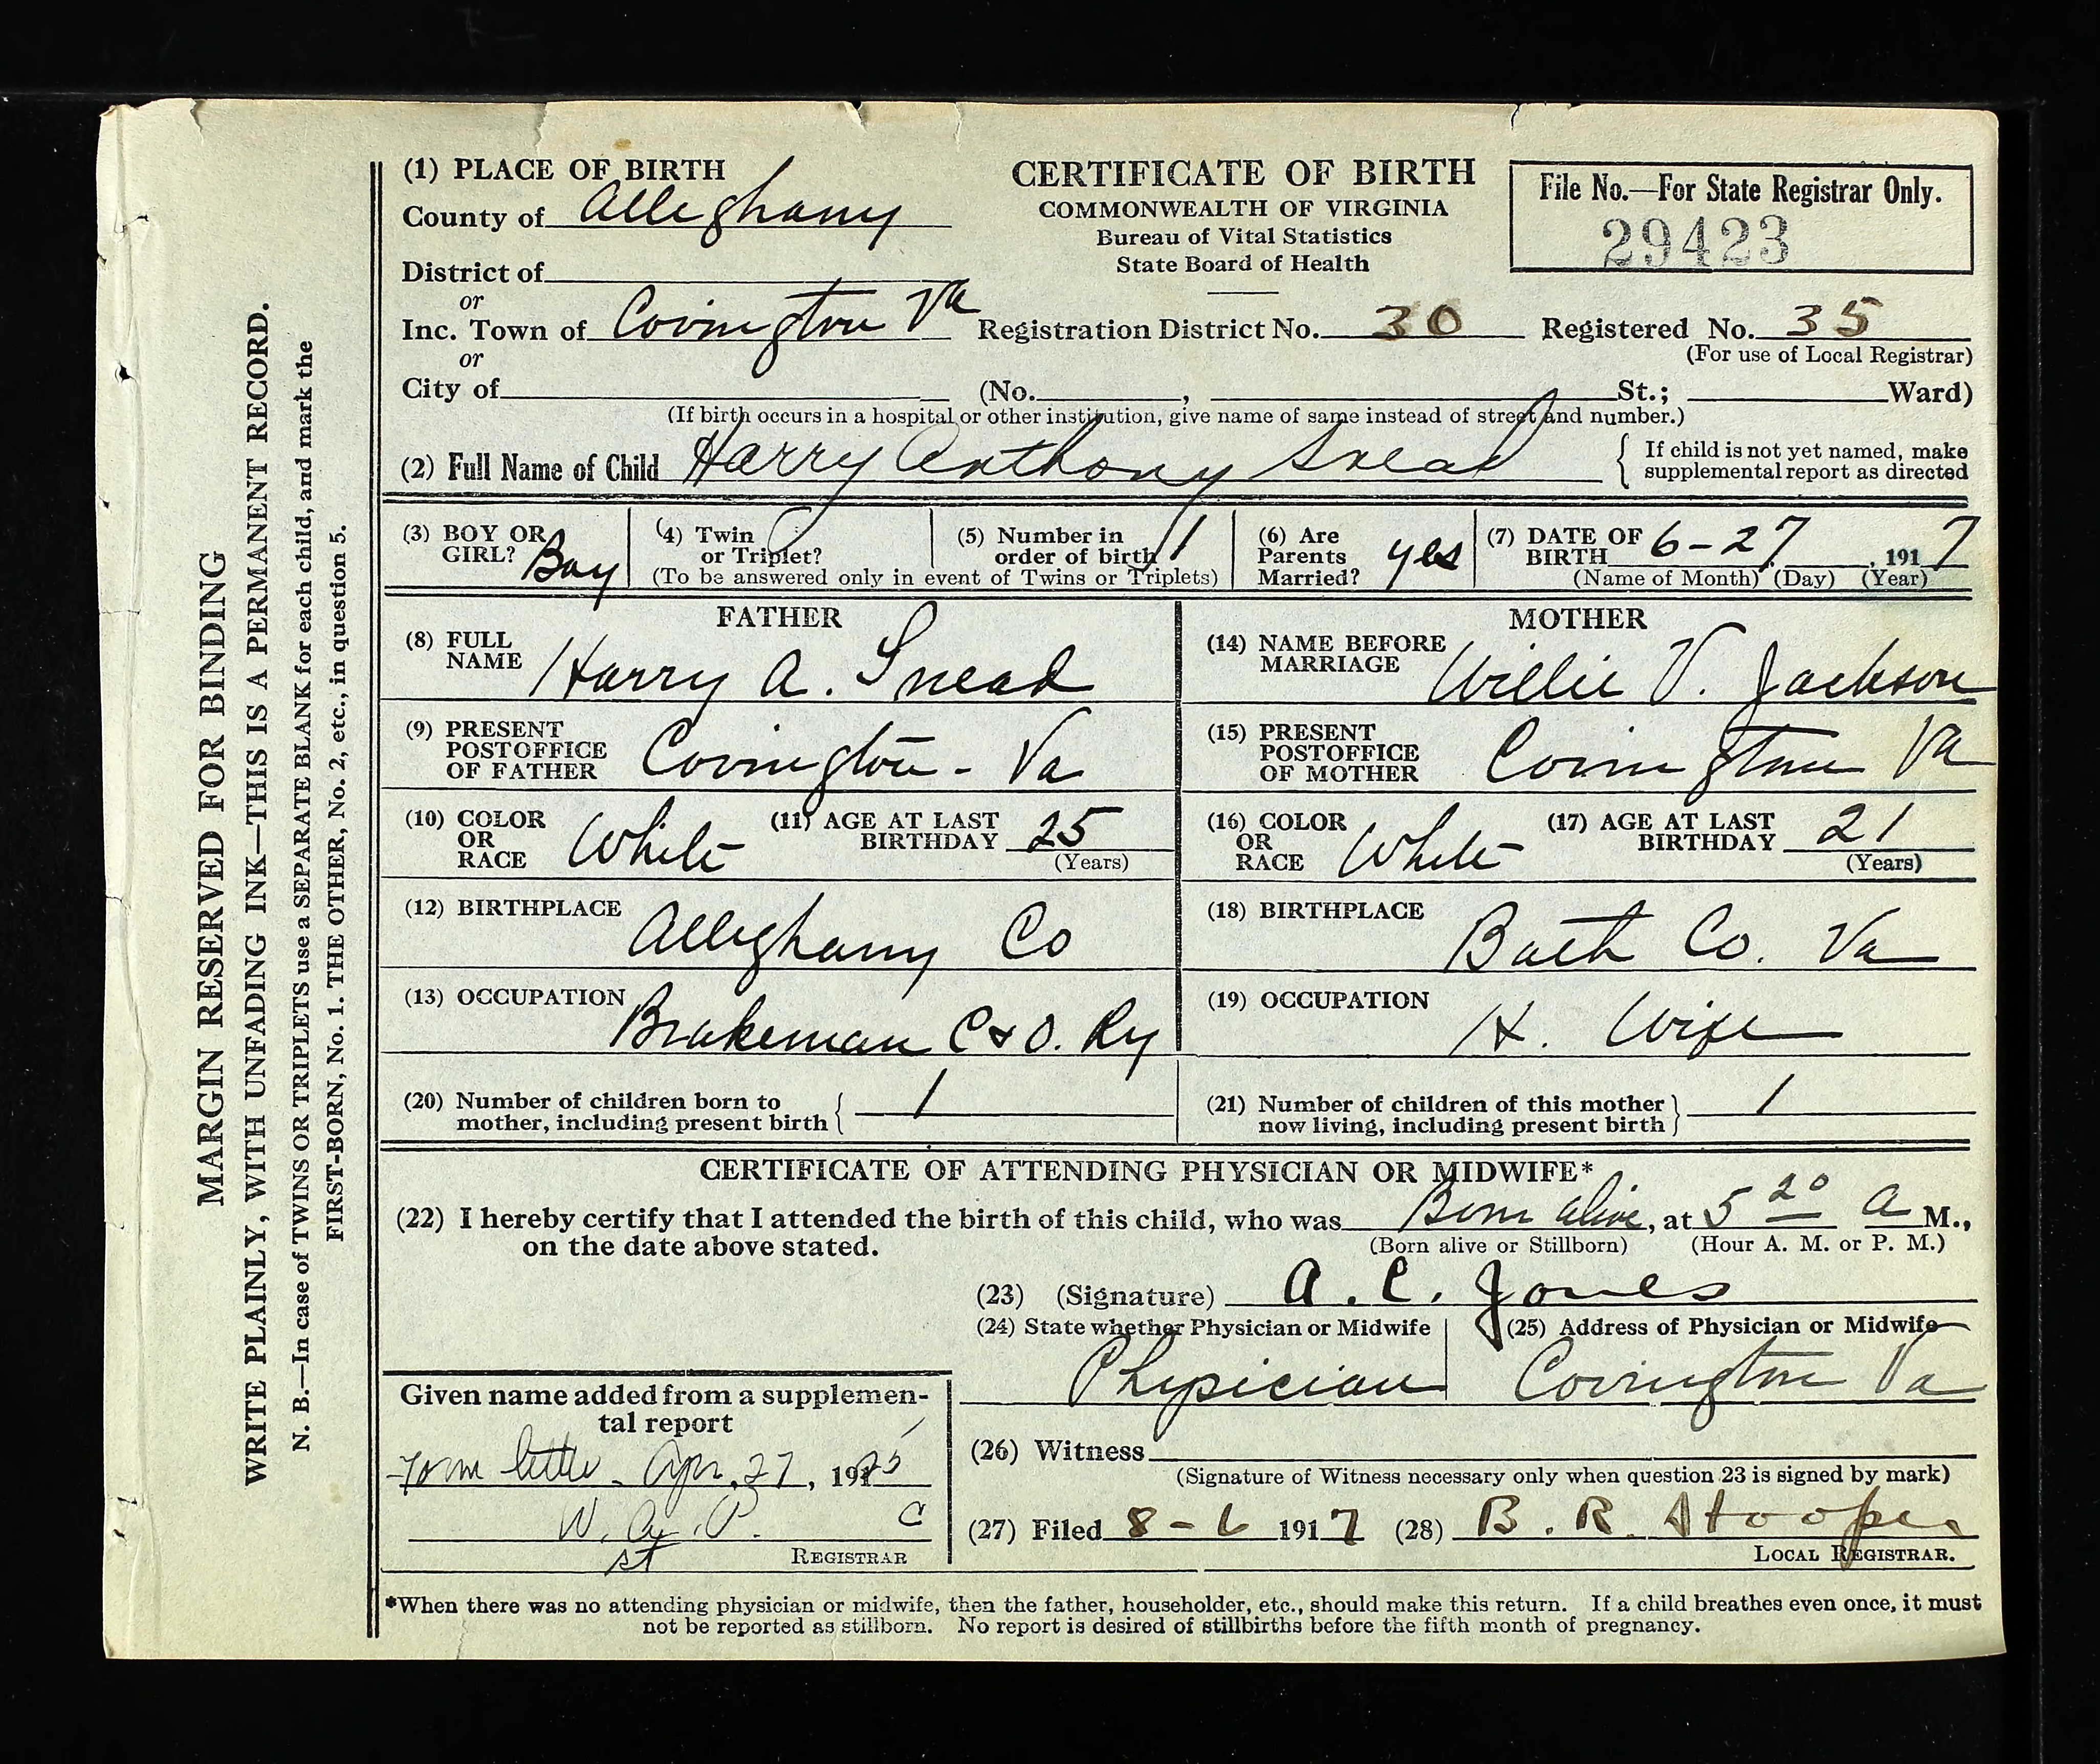 MARGIN RESERVED FOR BINDING
WRITE PLAINLY, WITH UNFADING INK—THIS IS A PERMANENT RECORD.
N. B.—In case of TWINS OR TRIPLETS use a SEPARATE BLANK for each child, and mark the
FIRST-BORN, No. 1. THE OTHER, No. 2, etc., in question 5.
(1) PLACE OF BIRTH
County of Alleghany
District of
or
Inc. Town of Covington Va
or
City of
CERTIFICATE OF BIRTH
COMMONWEALTH OF VIRGINIA
Bureau of Vital Statistics
State Board of Health
File No.—For State Registrar Only.
29423
Registration District No. 30 Registered No. 35
(For use of Local Registrar)
(No. , St.; Ward)
(If birth occurs in a hospital or other institution, give name of same instead of street and number.)
(2) Full Name of Child Harry Anthony Snead
If child is not yet named, make
supplemental report as directed
(3) BOY OR
GIRL? Boy
(4) Twin
or Triplet?
(5) Number in
order of birth 1
(To be answered only in event of Twins or Triplets)
(6) Are
Parents
Married? yes
(7) DATE OF
BIRTH 6-27, 1917
(Name of Month) (Day) (Year)
FATHER
(8) FULL
NAME Harry A. Snead
(9) PRESENT
POSTOFFICE
OF FATHER Covington - Va
(10) COLOR
OR
RACE White
(11) AGE AT LAST
BIRTHDAY 25
(Years)
(12) BIRTHPLACE
Alleghany Co
(13) OCCUPATION
Brakeman C & O. Ry
MOTHER
(14) NAME BEFORE
MARRIAGE Willie V. Jackson
(15) PRESENT
POSTOFFICE
OF MOTHER Covington Va
(16) COLOR
OR
RACE White
(17) AGE AT LAST
BIRTHDAY 21
(Years)
(18) BIRTHPLACE
Bath Co. Va
(19) OCCUPATION
H. Wife
(20) Number of children born to
mother, including present birth 1
(21) Number of children of this mother
now living, including present birth 1
CERTIFICATE OF ATTENDING PHYSICIAN OR MIDWIFE*
(22) I hereby certify that I attended the birth of this child, who was Born alive, at 5 20 A M.,
on the date above stated.
(Born alive or Stillborn) (Hour A. M. or P. M.)
(23) (Signature) A. C. Jones
(24) State whether Physician or Midwife
Physician
(25) Address of Physician or Midwife
Covington Va
Given name added from a supplemen-
tal report
letter - Apr. 27, 1925
REGISTRAR
(26) Witness
(Signature of Witness necessary only when question 23 is signed by mark)
(27) Filed 8-6 1917 (28) B. R.
LOCAL REGISTRAR.
*When there was no attending physician or midwife, then the father, householder, etc., should make this return. If a child breathes even once, it must
not be reported as stillborn. No report is desired of stillbirths before the fifth month of pregnancy.